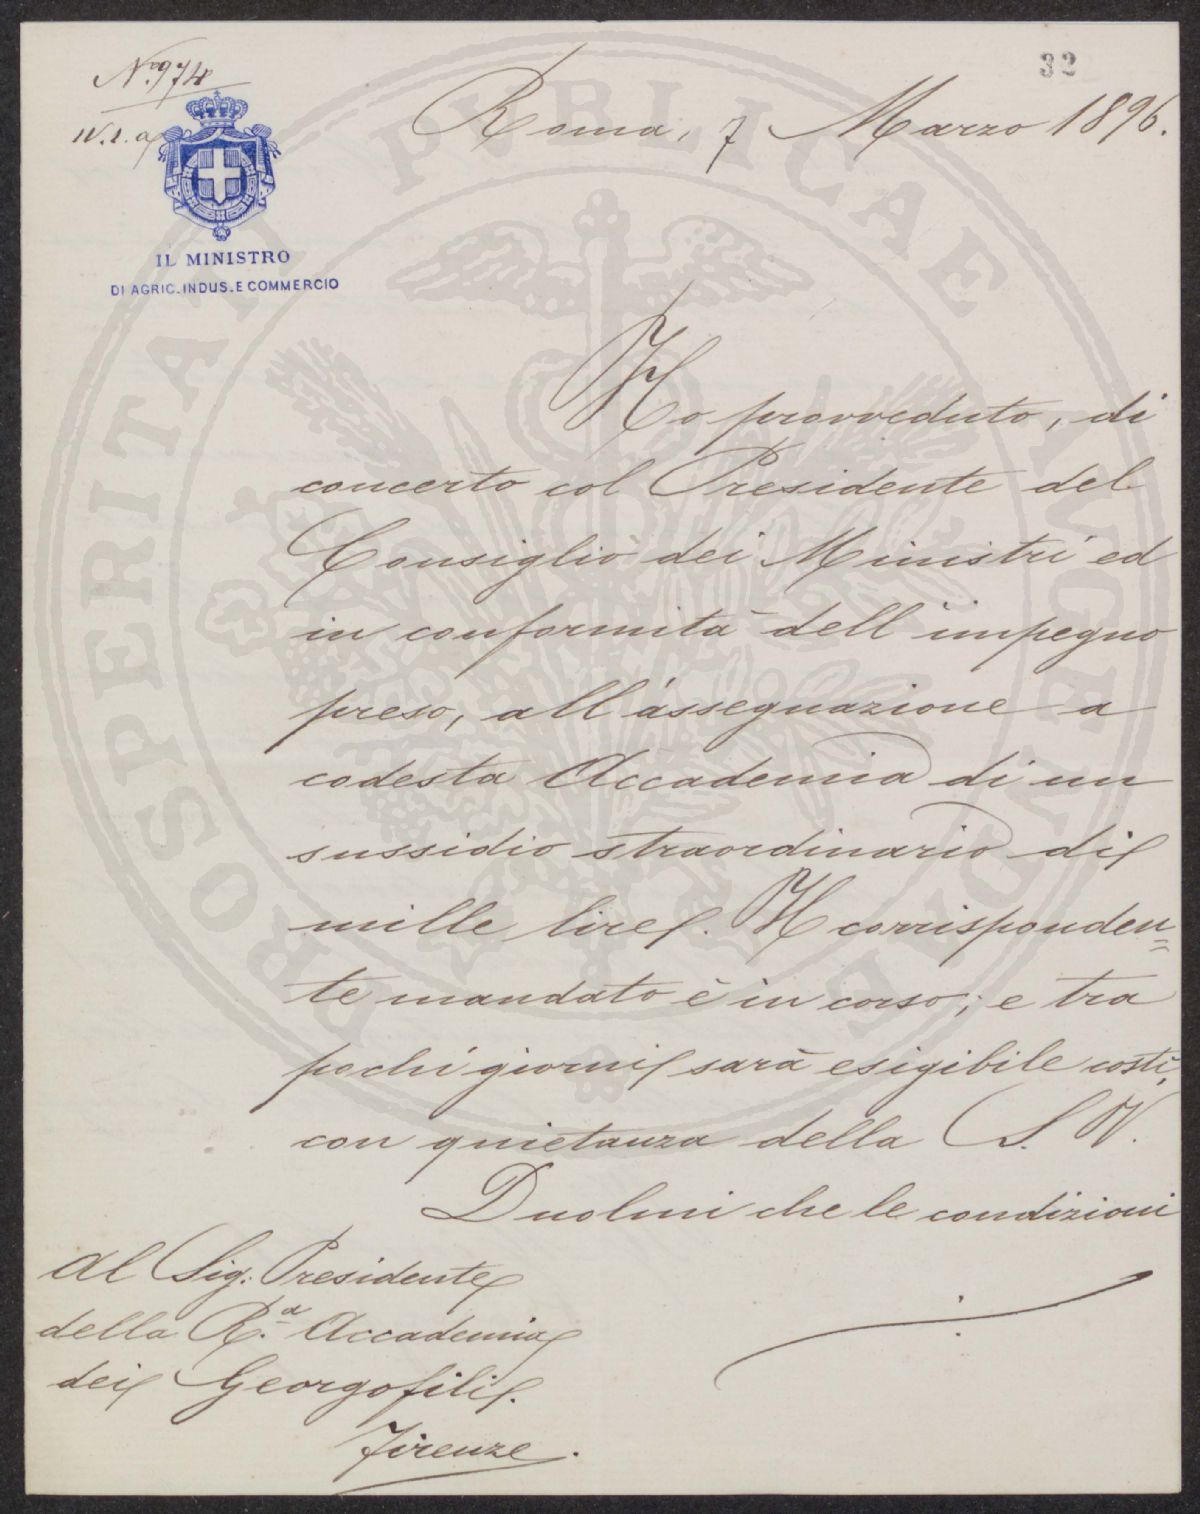 N.º 974
IV. 1. a
32
Roma, 7 Marzo 1896.
IL MINISTRO
DI AGRIC. INDUS. E COMMERCIO
Ho provveduto, di
concerto col Presidente del
Consiglio dei Ministri ed
in conformità dell'impegno
preso, all'assegnazione a
codesta Accademia di un
sussidio straordinario di
mille lire. Il corrisponden=
te mandato è in corso; e tra
pochi giorni sarà esigibile costì,
con quietanza della S. V.
Duolmi che le condizioni
Al Sig. Presidente
della R.ª Accademia
dei Georgofili.
Firenze.
PROSPERITATI PVBLICAE AVGENDAE